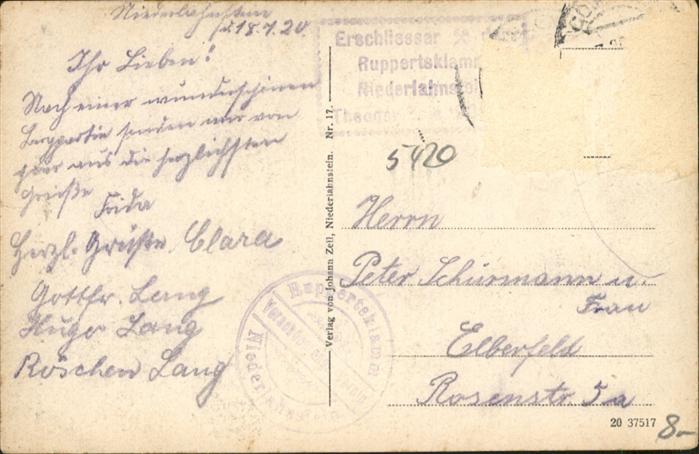 Niederlahnstein
18.7.20
Ihr Lieben!
Nach einer wunderschönen
Bergpartie senden wir von
hier aus die herzlichsten
Grüße
Frida
Herzl. Grüße Clara
Gottfr. Lang
Hugo Lang
Röschen Lang
Erschliesser
Ruppertsklamm
Niederlahnstein
Theodor
Ruppertsklamm
Verschönerungs
Niederlahnstein
Verlag von Johann Zeil, Niederlahnstein. Nr. 17.
5420
Herrn
Peter Schürmann u.
Frau
Elberfeld
Rosenstr. 5a
20 37517
8.-